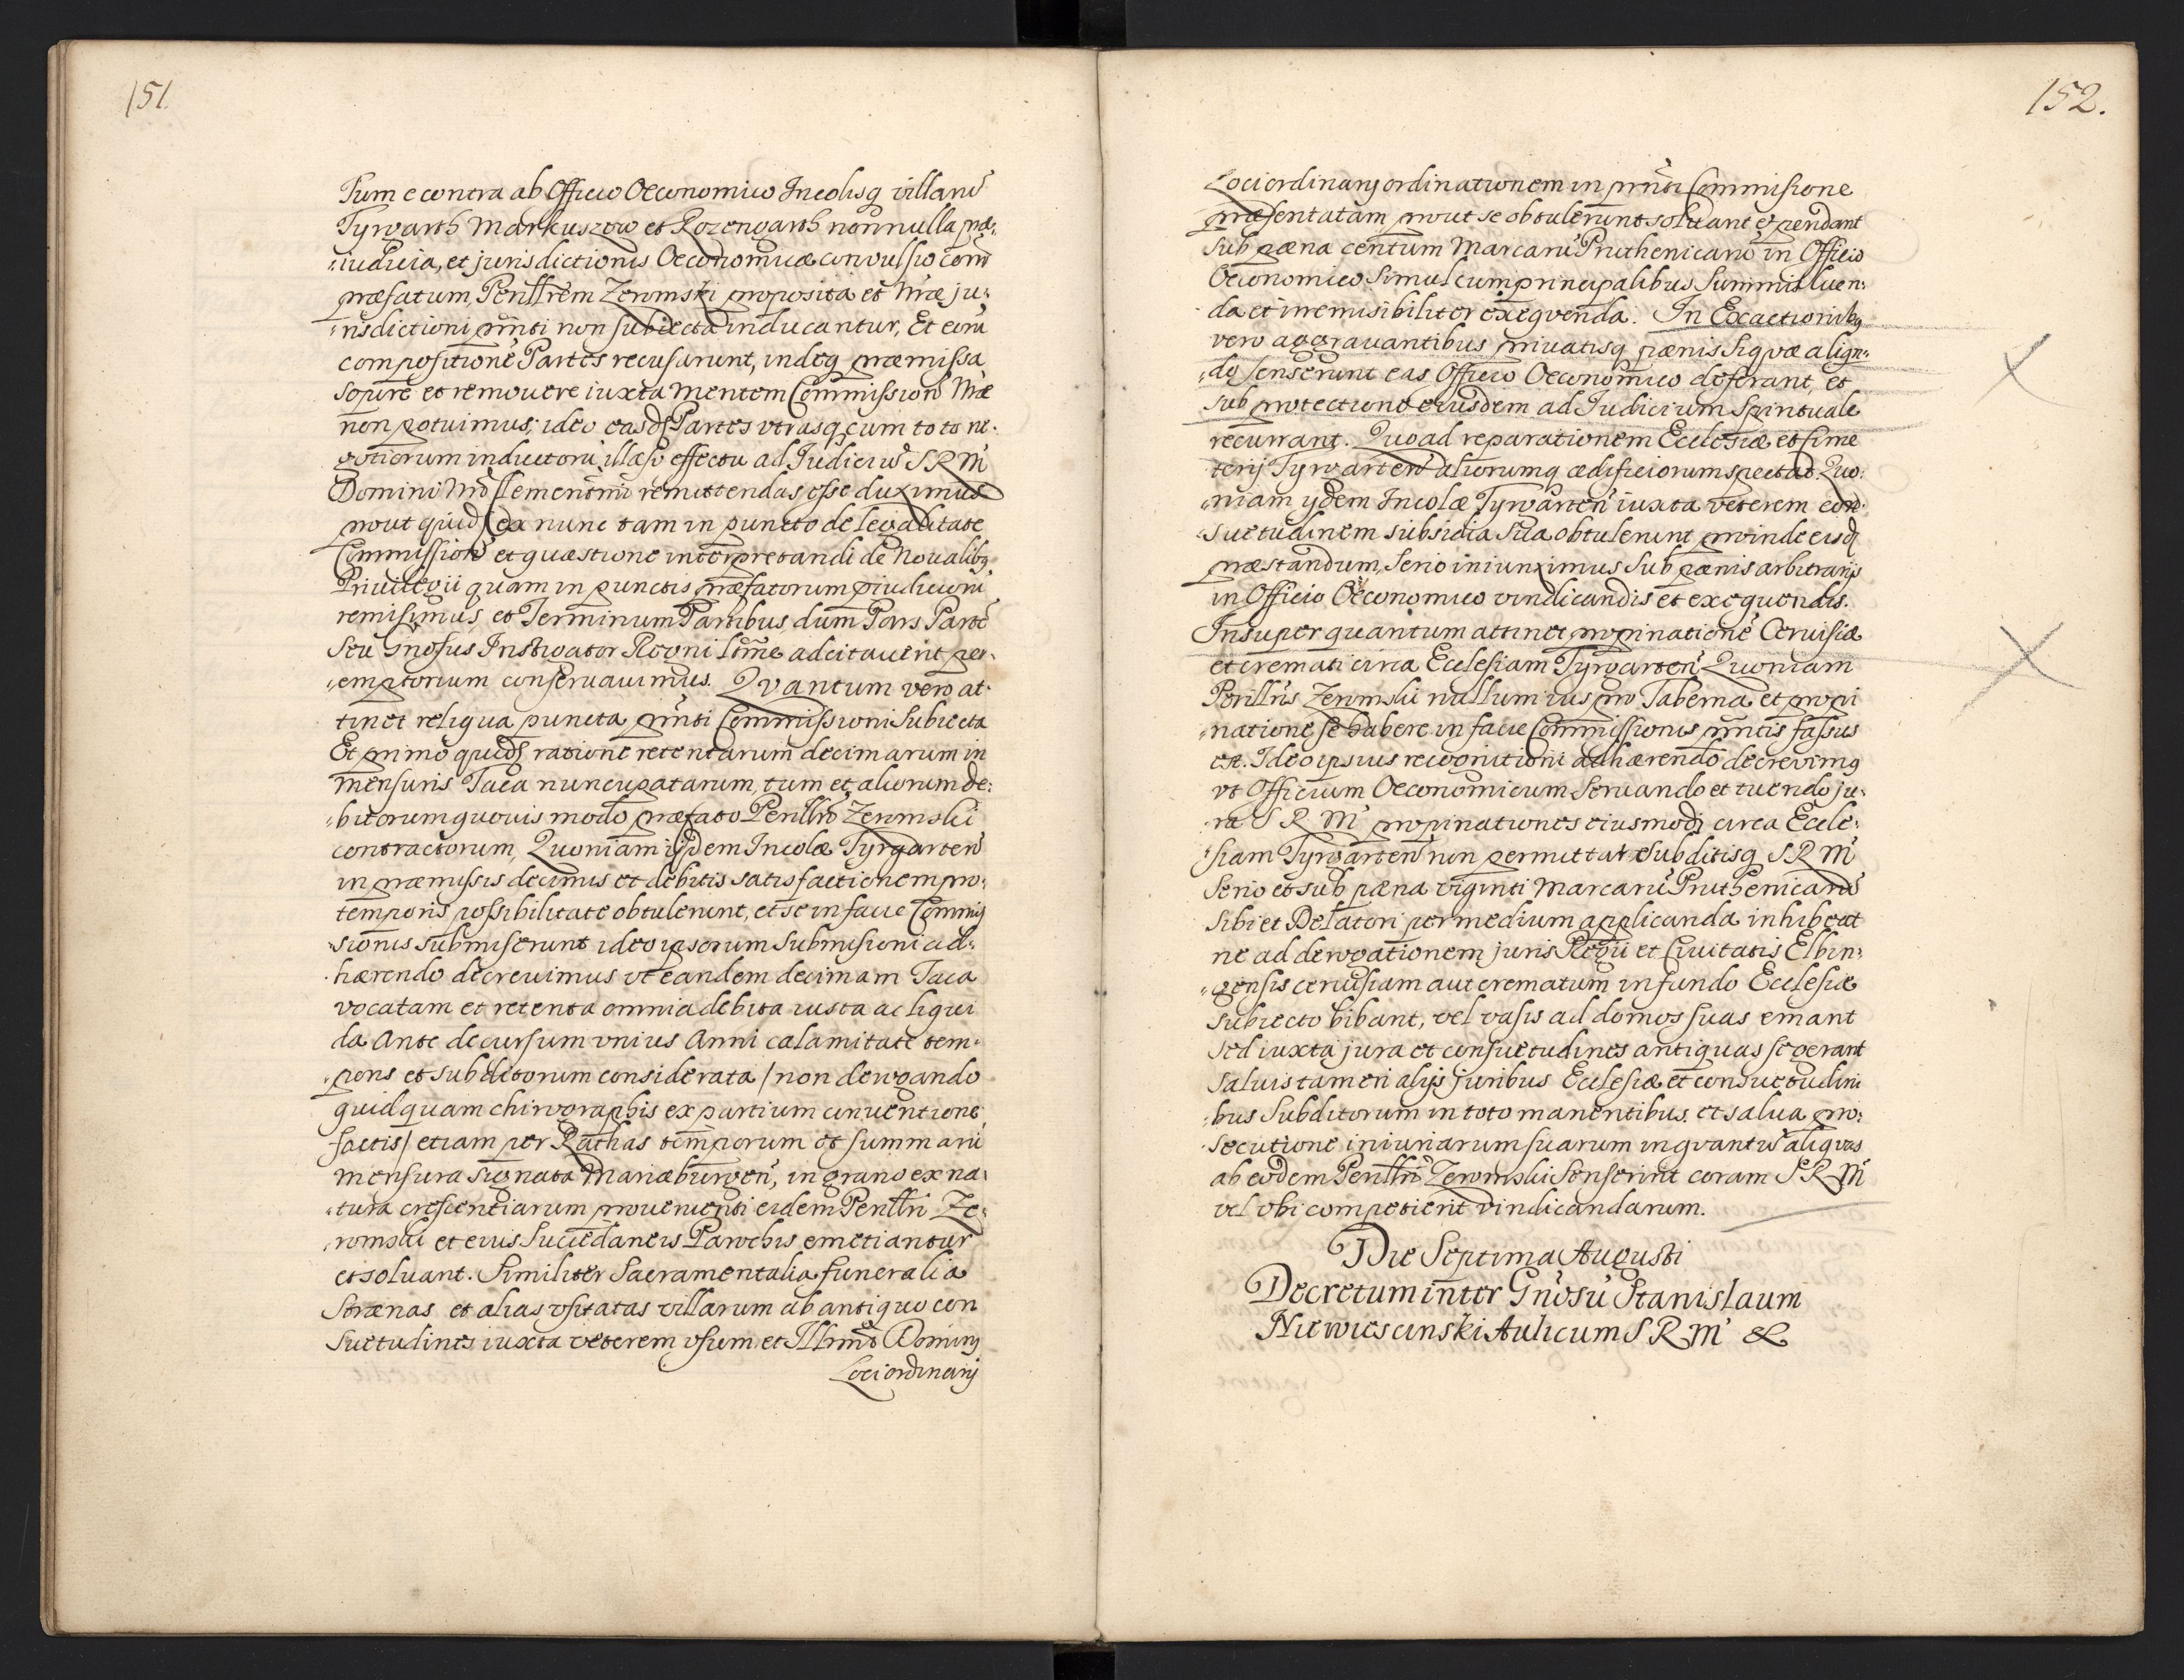 151.
Tum e contra ab Officio Oeconomico Incolisq villarũ
Tyrgarth Markuszow et Rozengarth nonnulla præ-
iudicia, et jurisdictionis Oeconomicæ convulsio corã
præfatum Perillrem Zeromski proposita et Nræ ju-
risdictioni prnti non subiecta inducantur, Et eorũ
compositionẽ Partes recusarunt, indeq præmissa
sopire et removere iuxta mentem Commission Nræ
non potuimus; ideo easd Partes utrasq cum toto ne-
gotiorum inductorũ illæso effectu ad Judiciũ S R M
Domini Nri Clementmi remittendas esse duximus
prout quid ex nunc tam in puncto de legalitate
Commission et quæstione interpretandi de Novalibq
Privilegii quam in punctis præfatorum piudiciorũ
remisimus, et Terminum Partibus, dum Pars Partẽ
seu Gnosus Instigator Regni ltme adcitaverit per-
emptorium conservavimus. Qvantum vero at-
tinet reliqua puncta prnti Commissioni Subiecta
Et primo quid ratione retentarum decimarum in
mensuris Taca nuncupatarum, tum et aliorum de-
bitorum quovis modo præfato Perillri Zeromski
contractorum, Quoniam ijdem Incolæ Tyrgarten
in præmissis decimis et debitis satisfactionem pro
temporis possibilitate obtulerunt, et se in facie Commis
sionis submiserunt ideo ipsorum Submisioni ad-
hærendo decrevimus ut eandem decimam Taca
vocatam et retenta omnia debita iusta ac liqui
da Ante decursum unius Anni calamitate tem-
poris et subditorum considerata / non derogando
quidquam chirographis ex partium conventione
factis / etiam per Rathas temporum et summarũ
mensura signata Mariæburgen, in grano ex na-
tura crescentiarum provenienti eidem Perillri Ze-
romski et eius Succedaneis Parochis emetiantur
et solvant. Similiter Sacramentalia funeralia
Strænas et alias usitatas villarum ab antiquo con
suetudines iuxta veterem usum et Illrmi Domini
Loci ordinarij
152.
Loci ordinarij ordinationem in prnti Commisione
præsentatam, prout se obtulerunt solvant et pendant
sub pæna centum Marcarũ Pruthenicarũ in Officio
Oeconomico Simul cum principalibus Summis luen-
da et irremisibiliter exeqvenda. In Exactionibq
vero aggravantibus privatisq pænis siqvæ aliqn-
do senserunt eas Officio Oeconomico deferant, et
sub protectione eiusdem ad Judicium Spirituale
recurrant. Quoad reparationem Ecclesiæ et Cime
terij Tyrgarten aliorumq ædificiorum spectat. Quo-
niam ydem Incolæ Tyrgarten iuxta veterem con-
suetudinem subsidia sua obtulerunt proinde eisd
præstandum, serio iniunximus sub pænis arbitrarijs
in Officio Oeconomico vindicandis et exequendis.
Insuper quantum attinet propinationẽ Cervisiæ
et cremati circa Ecclesiam Tyrgarten Quoniam
Perillris Zeromski nullum ius pro Taberna et propi
natione se habere in facie Commissionis prntis fassus
est. Ideo ipsius recognitioni adhærendo decrevimq
ut Officium Oeconomicum Servando et tuendo ju-
ra S R M propinationes eiusmodi circa Eccle-
siam Tyrgarten non permittat Subditisq S R M
serio et sub pæna viginti Marcarũ Pruthenicarũ
sibi et Delatori per medium applicanda inhibeat
ne ad derogationem juris Regii et Civitatis Elbin-
gensis cerevisiam aut crematum in fundo Ecclesiæ
subiecto bibant, vel vasis ad domos suas emant
sed iuxta jura et consuetudines antiquas se gerant
salvis tamen alijs juribus Ecclesiæ et consuetudini
bus Subditorum in toto manentibus. et salva pro-
secutione iniuriarum suarum in qvantũ aliqvas
ab eodem Perillri Zeromski senserint coram S R M
vel ubi competierit vindicandarum.
Die Septima Augusti
Decretum inter Gnosũ Stanislaum
Niewiescinski Aulicum S R M &